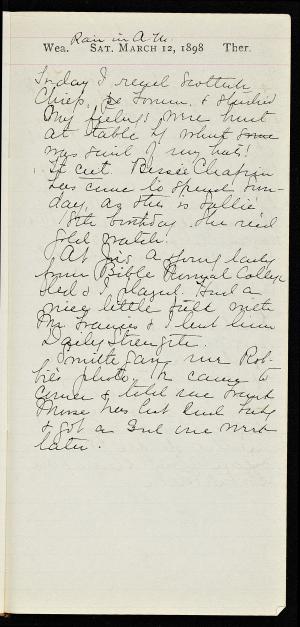 Rain in A.M.
Wea. SAT. MARCH 12, 1898 Ther.
Friday I read Scottish
Chiefs, & studied
My feelings were hurt
at table by what some
was said of my hat!
Bessie Chapin
has come to spend Sun-
day, as this is Sallie
18th birthday. She rec'd
gold watch.
At a young lady
from Bible Normal College
led & I played. Had a
nice little talk with
Mr. Francis & I lent him
Daily Strength.
Smith gave me Rob-
bie's photo. He came to
corner & told me
has lost
& got a 2nd one week
later.